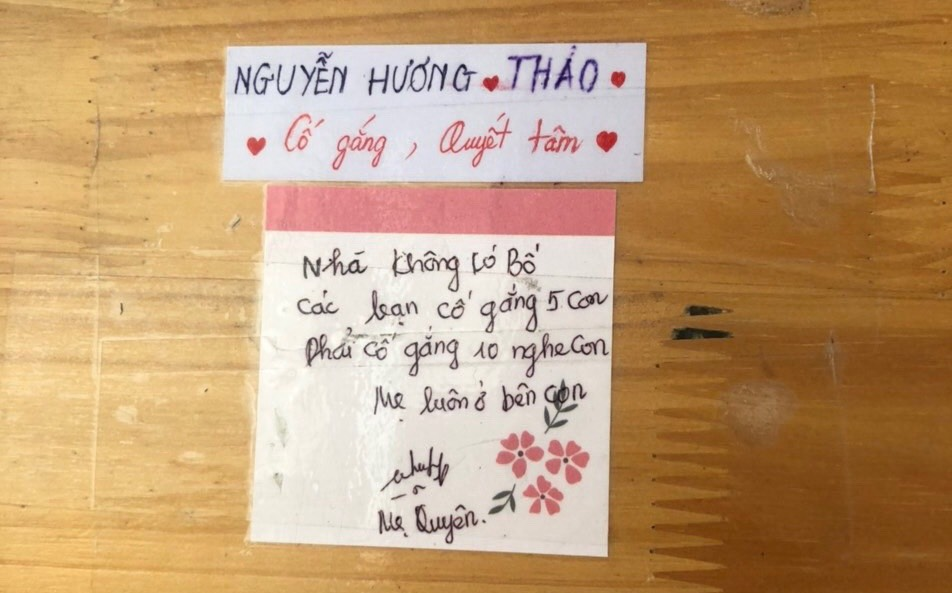 NGUYỄN HƯƠNG THẢO
Cố gắng, Quyết tâm
Nhà không có Bố
Các bạn cố gắng 5 con
Phải cố gắng 10 nghe con
Mẹ luôn ở bên con
Mẹ Quyên.